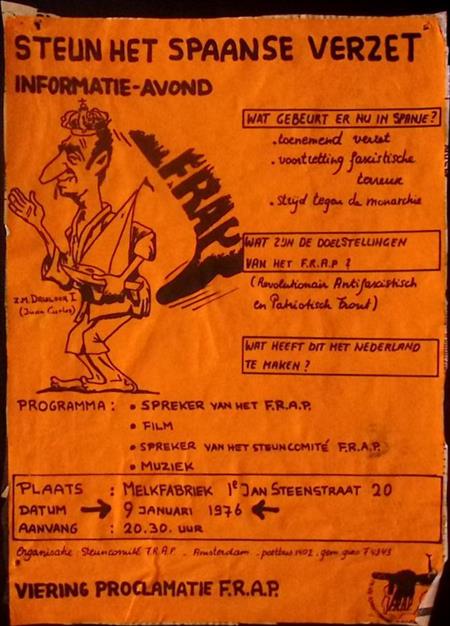 STEUN HET SPAANSE VERZET
INFORMATIE-AVOND
WAT GEBEURT ER NU IN SPANJE?
. toenemend verzet
. voortzetting fascistische
terreur
. strijd tegen de monarchie
F.R.A.P.
WAT ZIJN DE DOELSTELLINGEN
VAN HET F.R.A.P ?
(Revolutionair Antifascistisch
en Patriotisch Front)
Z.M.
(Juan Carlos)
WAT HEEFT DIT MET NEDERLAND
TE MAKEN ?
PROGRAMMA : • SPREKER VAN HET F.R.A.P.
• FILM
• SPREKER VAN HET STEUNCOMITÉ F.R.A.P.
• MUZIEK
PLAATS : MELKFABRIEK 1e JAN STEENSTRAAT 20
DATUM → 9 JANUARI 1976 ←
AANVANG : 20.30. UUR
Organisatie Steuncomité F.R.A.P. - Amsterdam - postbus 1402. gem. giro
VIERING PROCLAMATIE F.R.A.P.
FRAP